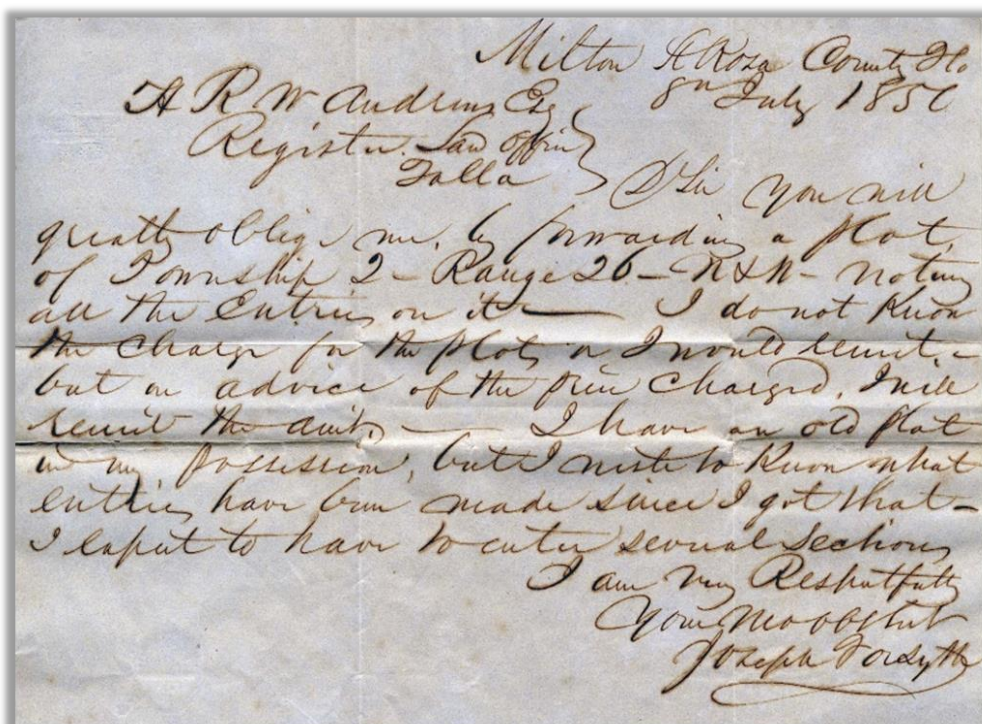 Milton St Rosa County Flo
8th July 1850
R W Andrews Esq
Register Land Office
Talla
D Sir you will
greatly oblige me, by forwarding a plot,
of Township 2 – Range 26 – N & W – noting
all the Entries on it — I do not know
the charge for the plot, or I would remit –
but on advice of the price charged, I will
remit the amt, — I have an old plat
in my possession, but I wish to know what
entries have been made since I got that –
I expect to have to enter several sections
I am very Respectfully
Your Mo obt
Joseph Forsyth